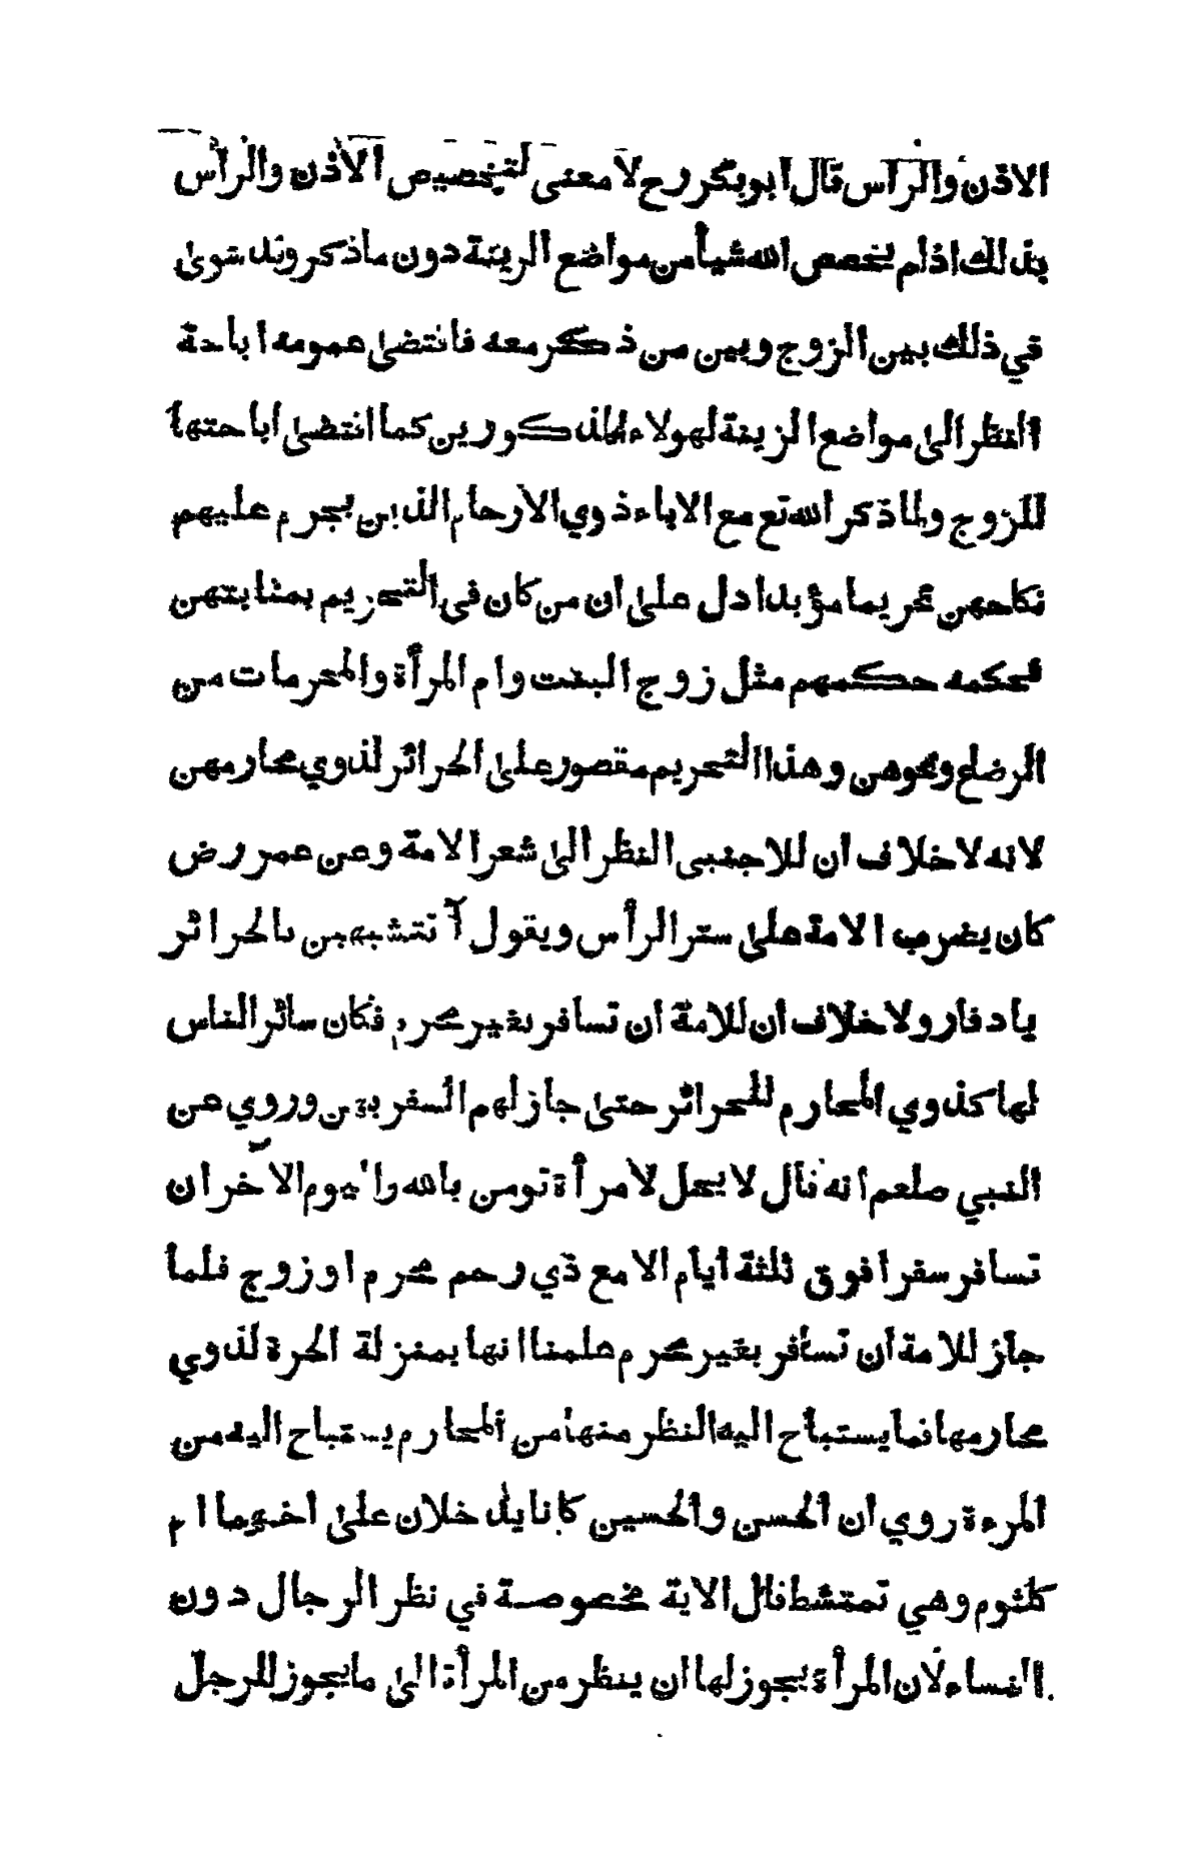 الاذن والرأس قال ابو بكر رح لا معنى لتخصيص الاذن والرأس
بذلك اذ لم يخصص الله شيأ من مواضع الزينة دون ما ذكر وقد سوى
في ذلك بين الزوج وبين من ذكر معه فاقتضى عمومه اباحة
النظر الى مواضع الزينة لهولاء المذكورين كما اقتضى اباحتها
للزوج ولما ذكر الله تع مع الاباء ذوي الارحام الذين يحرم عليهم
نكاحهن تحريما مؤبدا دل على ان من كان في التحريم بمثابتهن
فحكمه حكمهم مثل زوج البنت وام المرأة والمحرمات من
الرضاع ونحوهن وهذا التحريم مقصور على الحرائر لذوي محارمهن
لانه لا خلاف ان للاجنبى النظر الى شعر الامة وعن عمر رض
كان يضرب الامة على ستر الرأس ويقول آ تتشبهين بالحرائر
يا دفار ولا خلاف ان للامة ان تسافر بغير محرم فكان سائر الناس
لها كذوي المحارم للحرائر حتى جاز لهم السفر بهن وروي عن
النبي صلعم انه قال لا يحل لامرأة تومن بالله واليوم الآخر ان
تسافر سفرا فوق ثلثة أيام الا مع ذي رحم محرم او زوج فلما
جاز للامة ان تسافر بغير محرم علمنا انها بمنزلة الحرة لذوي
محارمها فما يستباح اليه النظر منها من المحارم يستباح اليه من
المرءة روي ان الحسن والحسين كانا يدخلان على اختهما ام
كلثوم وهي تمتشط قال الاية مخصوصة في نظر الرجال دون
النساء لان المرأة يجوز لها ان ينظر من المرأة الى ما يجوز للرجل